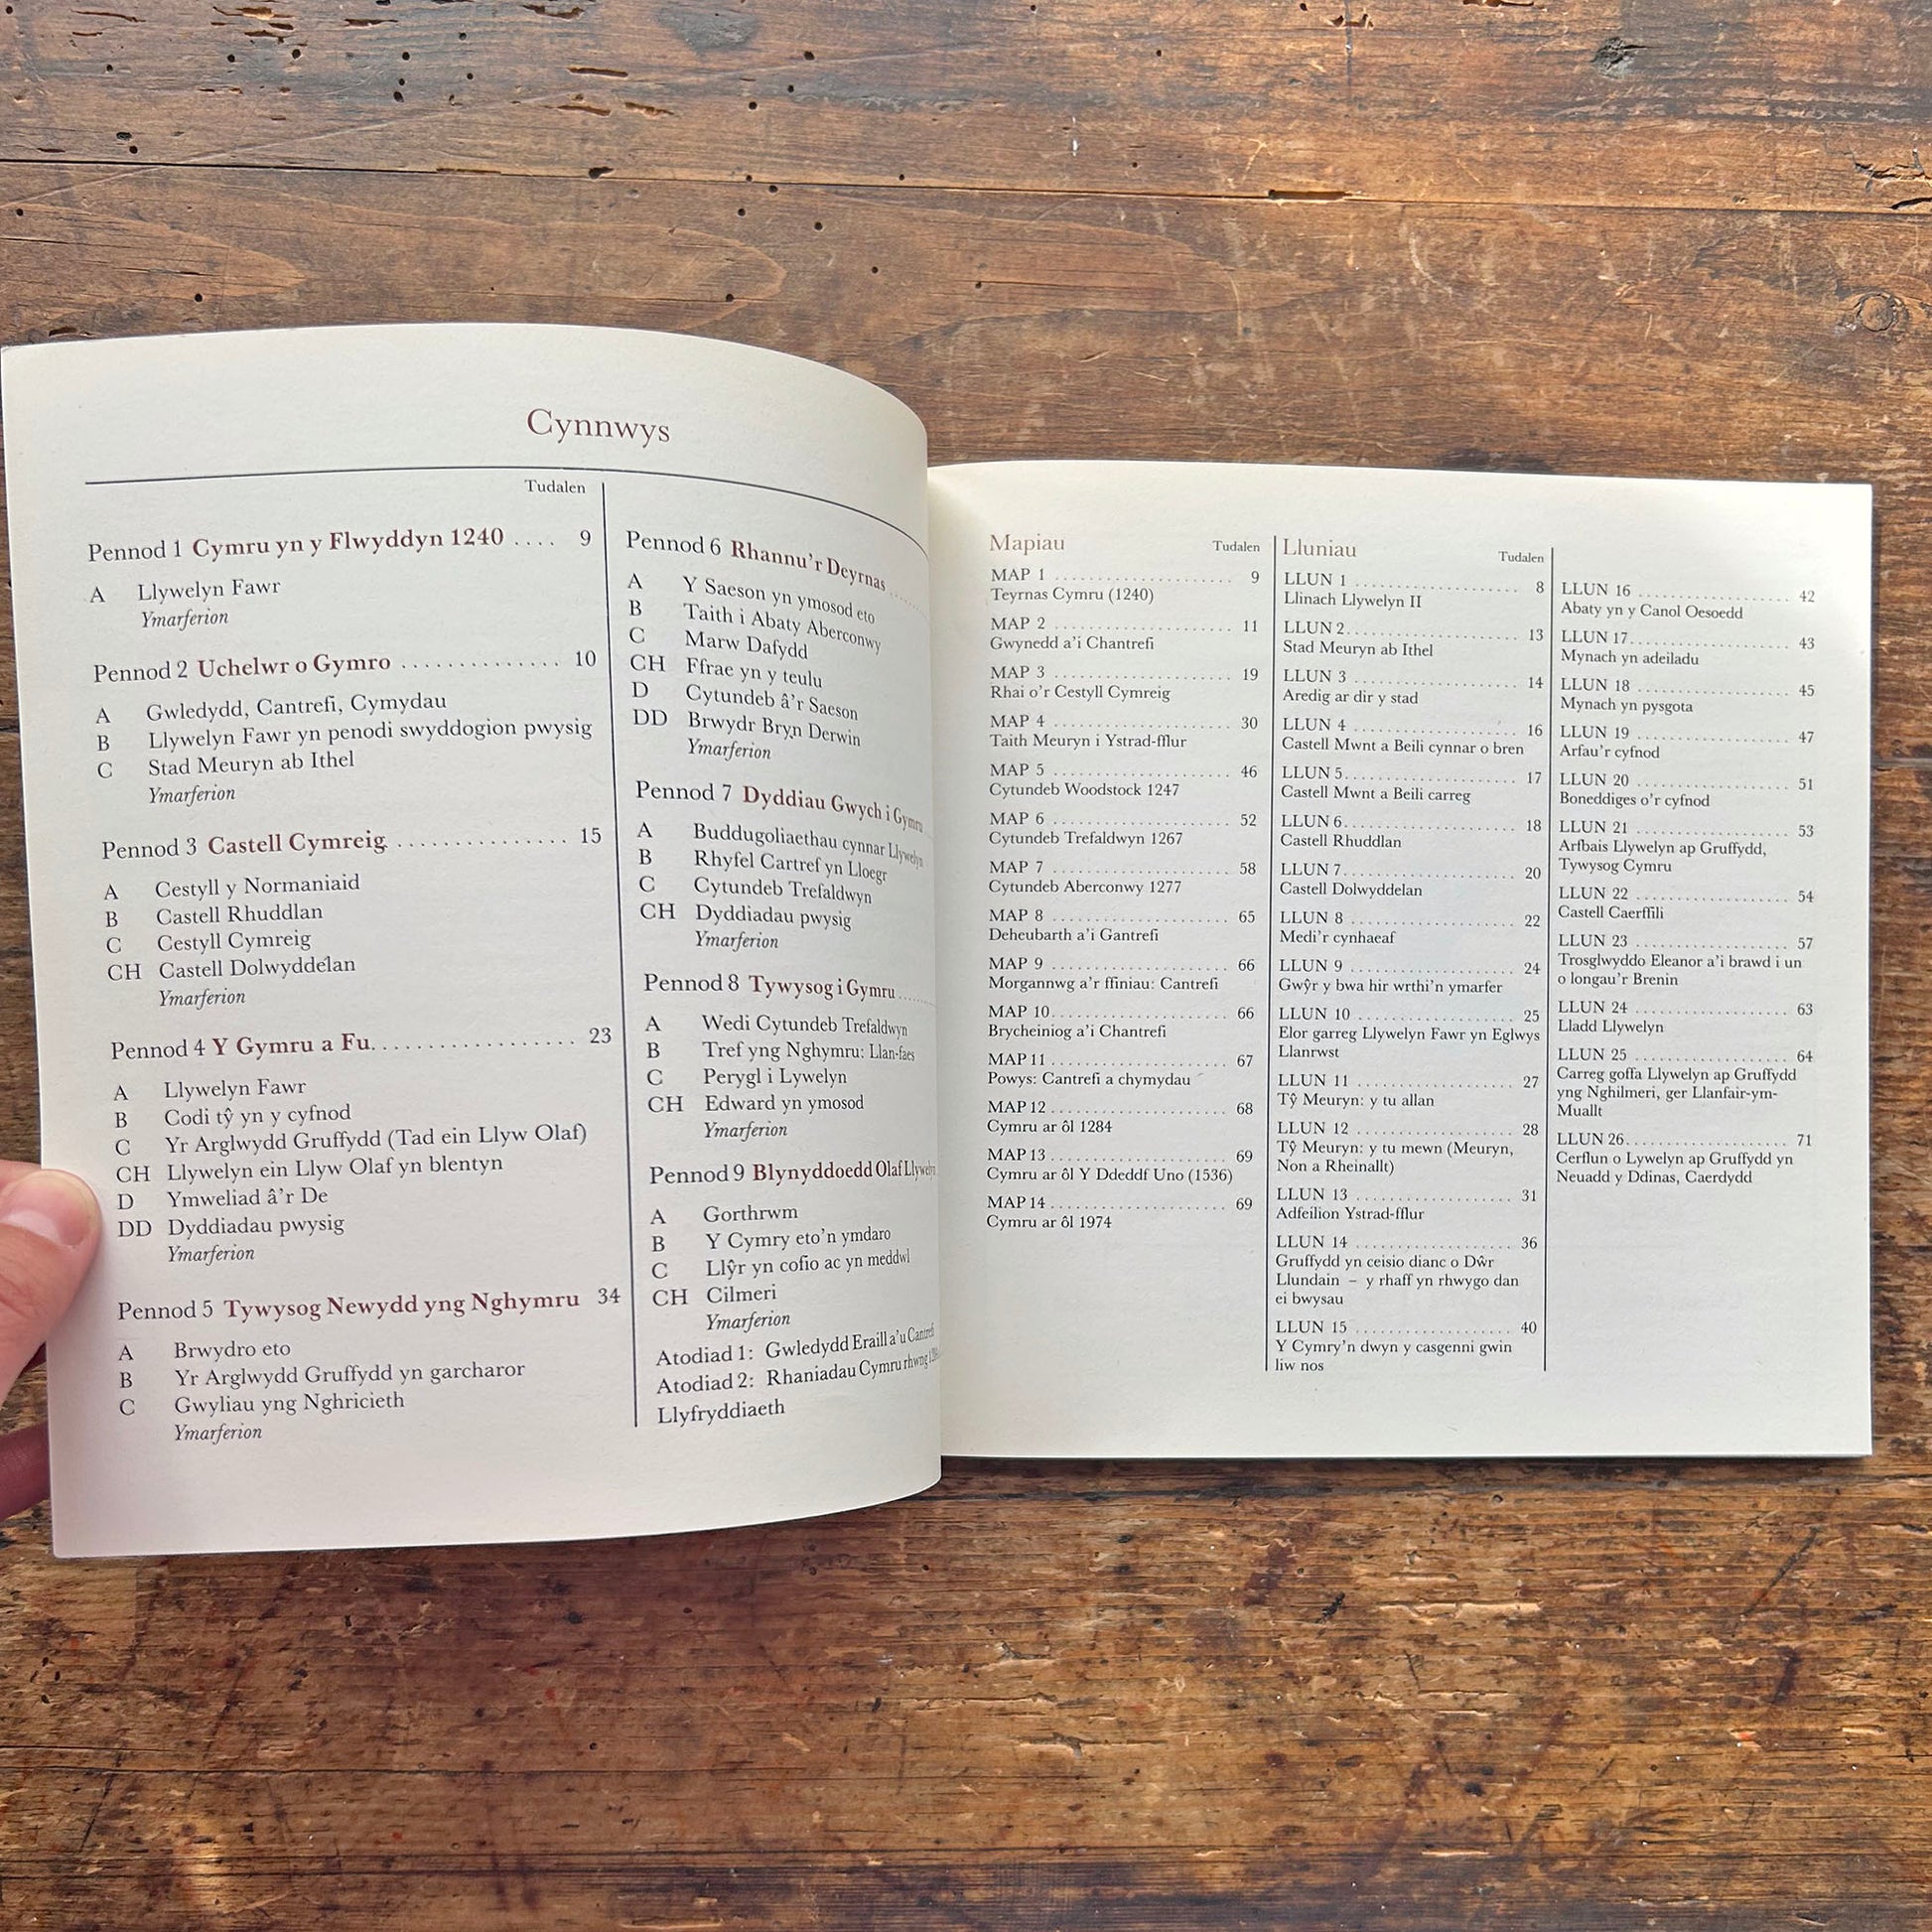 Cynnwys
Tudalen
Pennod 1 Cymru yn y Flwyddyn 1240 .... 9
A Llywelyn Fawr
Ymarferion
Pennod 2 Uchelwr o Gymro .............. 10
A Gwledydd, Cantrefi, Cymydau
B Llywelyn Fawr yn penodi swyddogion pwysig
C Stad Meuryn ab Ithel
Ymarferion
Pennod 3 Castell Cymreig ............... 15
A Cestyll y Normaniaid
B Castell Rhuddlan
C Cestyll Cymreig
CH Castell Dolwyddelan
Ymarferion
Pennod 4 Y Gymru a Fu .................. 23
A Llywelyn Fawr
B Codi tŷ yn y cyfnod
C Yr Arglwydd Gruffydd (Tad ein Llyw Olaf)
CH Llywelyn ein Llyw Olaf yn blentyn
D Ymweliad â'r De
DD Dyddiadau pwysig
Ymarferion
Pennod 5 Tywysog Newydd yng Nghymru 34
A Brwydro eto
B Yr Arglwydd Gruffydd yn garcharor
C Gwyliau yng Nghricieth
Ymarferion
Pennod 6 Rhannu'r Deyrnas
A Y Saeson yn ymosod eto
B Taith i Abaty Aberconwy
C Marw Dafydd
CH Ffrae yn y teulu
D Cytundeb â'r Saeson
DD Brwydr Bryn Derwin
Ymarferion
Pennod 7 Dyddiau Gwych i Gymru
A Buddugoliaethau cynnar Llywelyn
B Rhyfel Cartref yn Lloegr
C Cytundeb Trefaldwyn
CH Dyddiadau pwysig
Ymarferion
Pennod 8 Tywysog i Gymru
A Wedi Cytundeb Trefaldwyn
B Tref yng Nghymru: Llan-faes
C Perygl i Lywelyn
CH Edward yn ymosod
Ymarferion
Pennod 9 Blynyddoedd Olaf Llywelyn
A Gorthrwm
B Y Cymry eto'n ymdaro
C Llŷr yn cofio ac yn meddwl
CH Cilmeri
Ymarferion
Atodiad 1: Gwledydd Eraill a'u Cantrefi
Atodiad 2: Rhaniadau Cymru rhwng
Llyfryddiaeth
Mapiau Tudalen
MAP 1 ...................... 9
Teyrnas Cymru (1240)
MAP 2 ...................... 11
Gwynedd a'i Chantrefi
MAP 3 ...................... 19
Rhai o'r Cestyll Cymreig
MAP 4 ...................... 30
Taith Meuryn i Ystrad-fflur
MAP 5 ...................... 46
Cytundeb Woodstock 1247
MAP 6 ...................... 52
Cytundeb Trefaldwyn 1267
MAP 7 ...................... 58
Cytundeb Aberconwy 1277
MAP 8 ...................... 65
Deheubarth a'i Gantrefi
MAP 9 ...................... 66
Morgannwg a'r ffiniau: Cantrefi
MAP 10 ...................... 66
Brycheiniog a'i Chantrefi
MAP 11 ...................... 67
Powys: Cantrefi a chymydau
MAP 12 ...................... 68
Cymru ar ôl 1284
MAP 13 ...................... 69
Cymru ar ôl Y Ddeddf Uno (1536)
MAP 14 ...................... 69
Cymru ar ôl 1974
Lluniau Tudalen
LLUN 1 .................... 8
Llinach Llywelyn II
LLUN 2 .................... 13
Stad Meuryn ab Ithel
LLUN 3 .................... 14
Aredig ar dir y stad
LLUN 4 .................... 16
Castell Mwnt a Beili cynnar o bren
LLUN 5 .................... 17
Castell Mwnt a Beili carreg
LLUN 6 .................... 18
Castell Rhuddlan
LLUN 7 .................... 20
Castell Dolwyddelan
LLUN 8 .................... 22
Medi'r cynhaeaf
LLUN 9 .................... 24
Gwŷr y bwa hir wrthi'n ymarfer
LLUN 10 .................... 25
Elor garreg Llywelyn Fawr yn Eglwys
Llanrwst
LLUN 11 .................... 27
Tŷ Meuryn: y tu allan
LLUN 12 .................... 28
Tŷ Meuryn: y tu mewn (Meuryn,
Non a Rheinallt)
LLUN 13 .................... 31
Adfeilion Ystrad-fflur
LLUN 14 .................... 36
Gruffydd yn ceisio dianc o Dŵr
Llundain – y rhaff yn rhwygo dan
ei bwysau
LLUN 15 .................... 40
Y Cymry'n dwyn y casgenni gwin
liw nos
LLUN 16 .................... 42
Abaty yn y Canol Oesoedd
LLUN 17 .................... 43
Mynach yn adeiladu
LLUN 18 .................... 45
Mynach yn pysgota
LLUN 19 .................... 47
Arfau'r cyfnod
LLUN 20 .................... 51
Boneddiges o'r cyfnod
LLUN 21 .................... 53
Arfbais Llywelyn ap Gruffydd,
Tywysog Cymru
LLUN 22 .................... 54
Castell Caerffili
LLUN 23 .................... 57
Trosglwyddo Eleanor a'i brawd i un
o longau'r Brenin
LLUN 24 .................... 63
Lladd Llywelyn
LLUN 25 .................... 64
Carreg goffa Llywelyn ap Gruffydd
yng Nghilmeri, ger Llanfair-ym-
Muallt
LLUN 26 .................... 71
Cerflun o Lywelyn ap Gruffydd yn
Neuadd y Ddinas, Caerdydd